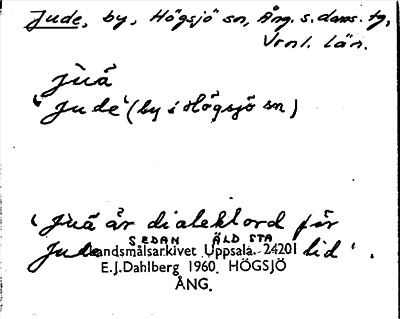 Jude, by, Högsjö sn, Ång. s. doms. tg,
Vrnl. län.
juä
'Jude' (by i Högsjö sn)
'Juä är dialektord för
Jude SEDAN ÄLDSTA tid'.
Landsmålsarkivet Uppsala. 24201
E.J.Dahlberg 1960. HÖGSJÖ
ÅNG.